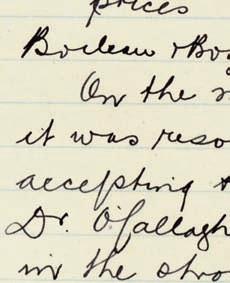 prices
Boileau & Bo
On the
it was reso
accepting t
Dr. O'Callagh
in the stro